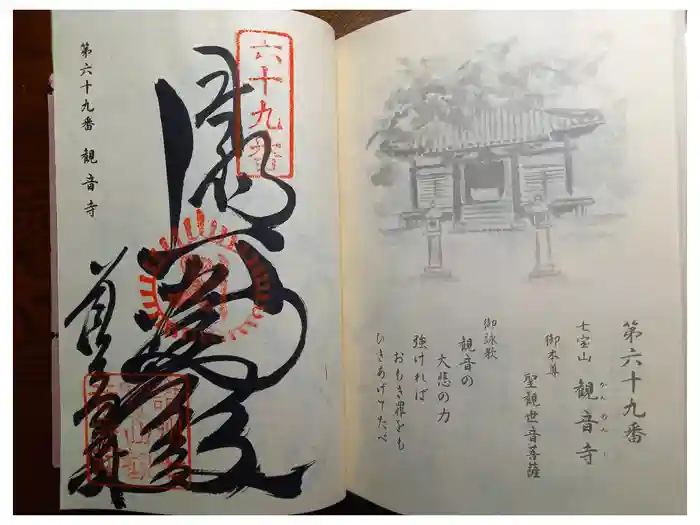 第六十九番
七宝山 観音寺
かんのんじ
御本尊
聖観世音菩薩
御詠歌
観音の
大悲の力
強ければ
おもき罪をも
ひきあげてたべ
第六十九番 観音寺
六十九番
観音寺